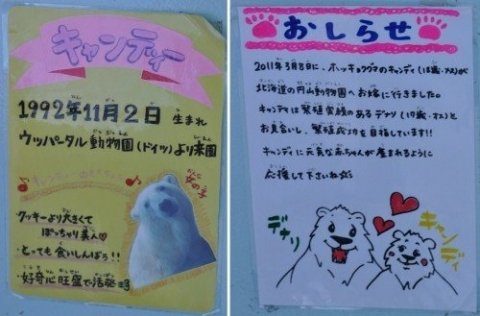 キャンディー
1992年11月2日 生まれ
ウッパータル動物園(ドイツ)より来園
クッキーより大きくて
ぽっちゃり美人♡
とっても食いしんぼう!!
好奇心旺盛で活発
おしらせ
2011年3月8日に、ホッキョクグマのキャンディ(18歳・メス)が
北海道の円山動物園へお嫁に行きました。
キャンディは繁殖実績のあるデナリ(17歳・オス)と
お見合いし、繁殖成功を目指しています!!
キャンディに元気な赤ちゃんが産まれるように
応援して下さいね
デナリ
キャンディ